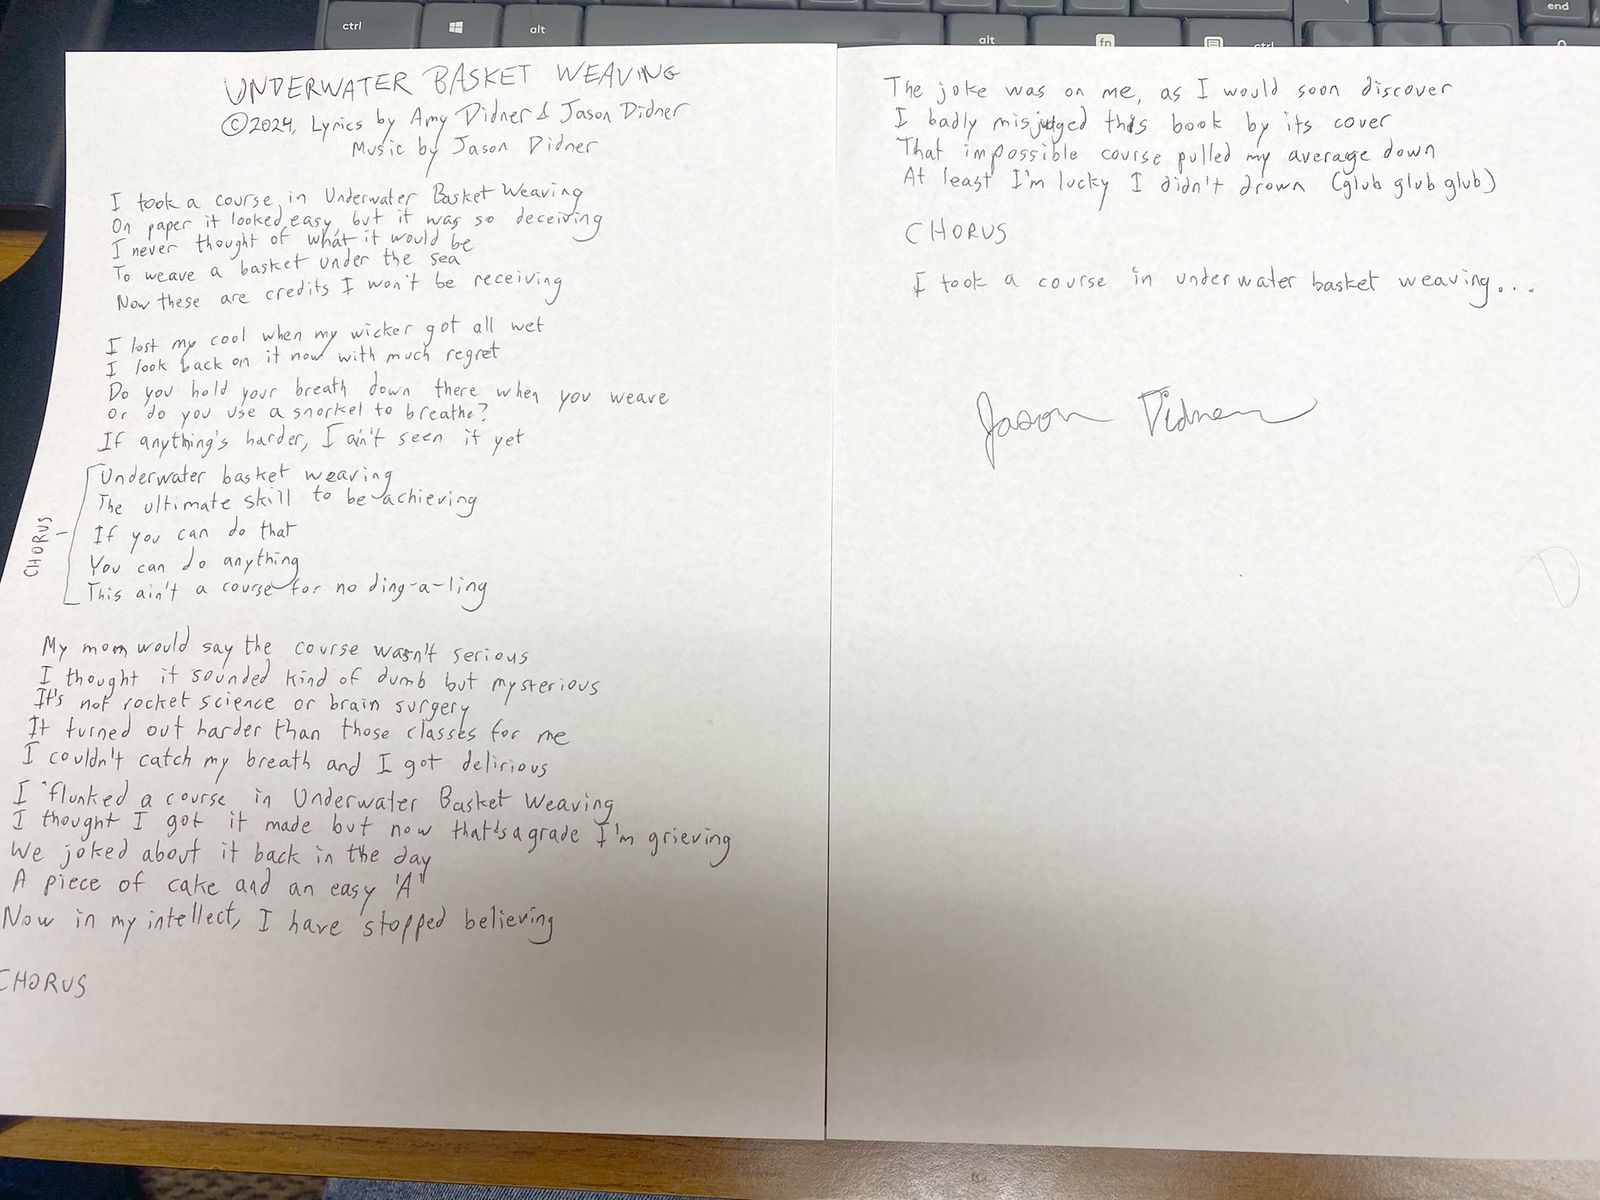 ctrl
alt
alt
fn
ctrl
end
UNDERWATER BASKET WEAVING
©2024, Lyrics by Amy Didner & Jason Didner
Music by Jason Didner
I took a course in Underwater Basket Weaving
On paper it looked easy, but it was so deceiving
I never thought of what it would be
To weave a basket under the sea
Now these are credits I won't be receiving
I lost my cool when my wicker got all wet
I look back on it now with much regret
Do you hold your breath down there when you weave
Or do you use a snorkel to breathe?
If anything's harder, I ain't seen it yet
CHORUS
Underwater basket weaving
The ultimate skill to be achieving
If you can do that
You can do anything
This ain't a course for no ding-a-ling
My mom would say the course wasn't serious
I thought it sounded kind of dumb but mysterious
It's not rocket science or brain surgery
It turned out harder than those classes for me
I couldn't catch my breath and I got delirious
I flunked a course in Underwater Basket Weaving
I thought I got it made but now that's a grade I'm grieving
We joked about it back in the day
A piece of cake and an easy 'A'
Now in my intellect, I have stopped believing
CHORUS
The joke was on me, as I would soon discover
I badly misjudged this book by its cover
That impossible course pulled my average down
At least I'm lucky I didn't drown (glub glub glub)
CHORUS
I took a course in underwater basket weaving...
Jason Didner